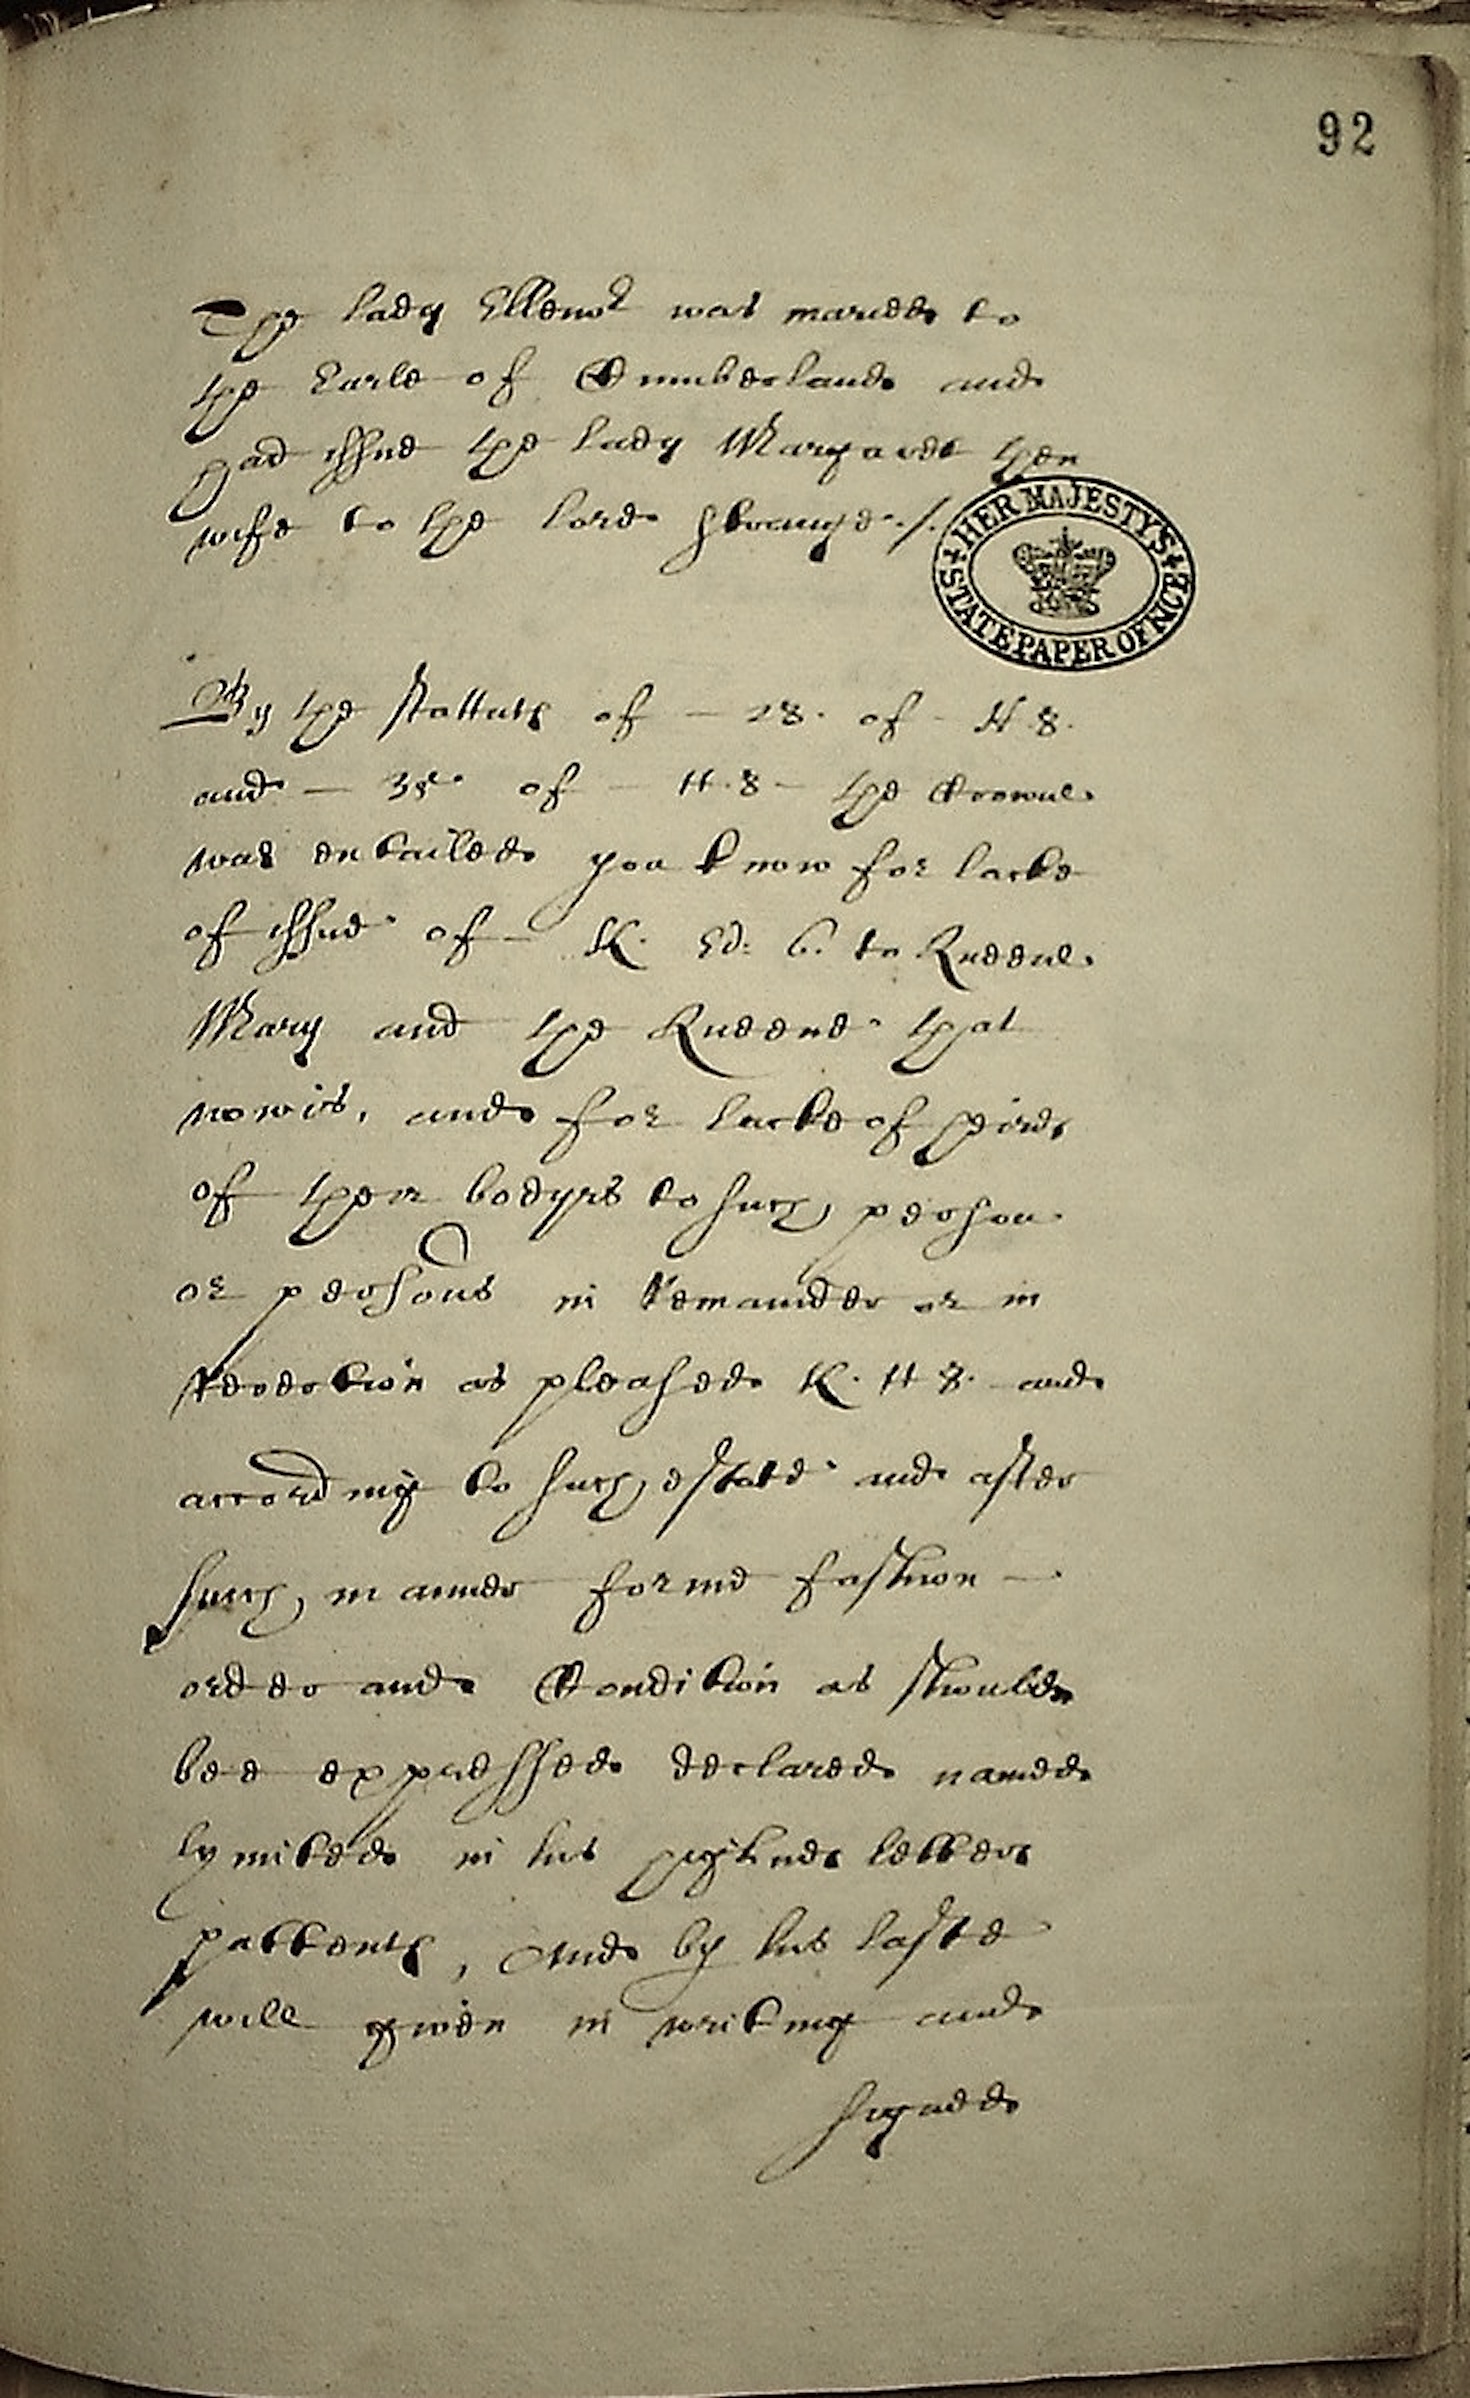 92
The lady Ellenor was maried to
the Earle of Cumberland and
had issue the lady Margaret then
wife to the lord Strange ./.
HER MAJESTY'S STATE PAPER OFFICE
By the Stattuts of - 28. of - H. 8.
and - 35. of - H. 8 - the Crowne
was entailed you know for lacke
of issue of - K. Ed: 6. to Queene
Mary and the Queene that
now is, and for lacke of heires
of their bodyes to such person
or persons in Remainder or in
Revertion as pleased K. H 8. and
according to such estate and after
such manner forme fashion -
order and Condition as should
bee expressed declared named
lymited in his letters
pattents, And by his laste
will given in writing and
signed